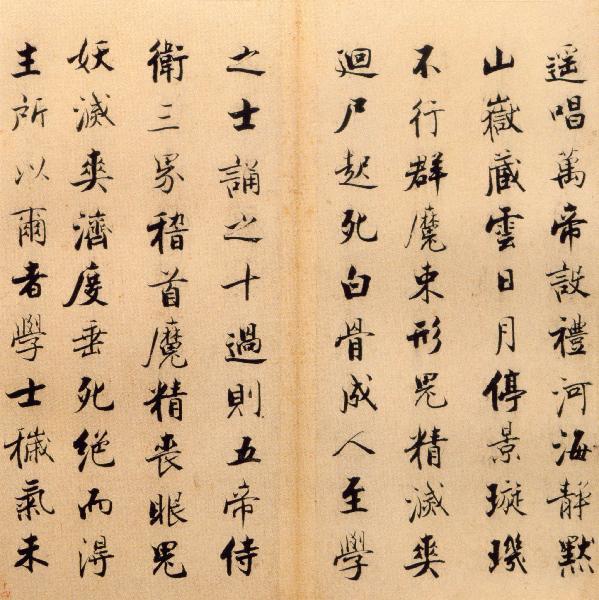 遥唱萬帝設禮河海静默
山嶽藏雲日月停景璇璣
不行群魔束形鬼精滅爽
廻尸起死白骨成人至學
之士誦之十過則五帝侍
衛三界稽首魔精喪眼鬼
妖滅爽濟度垂死絶而得
生所以爾者學士穢氣未